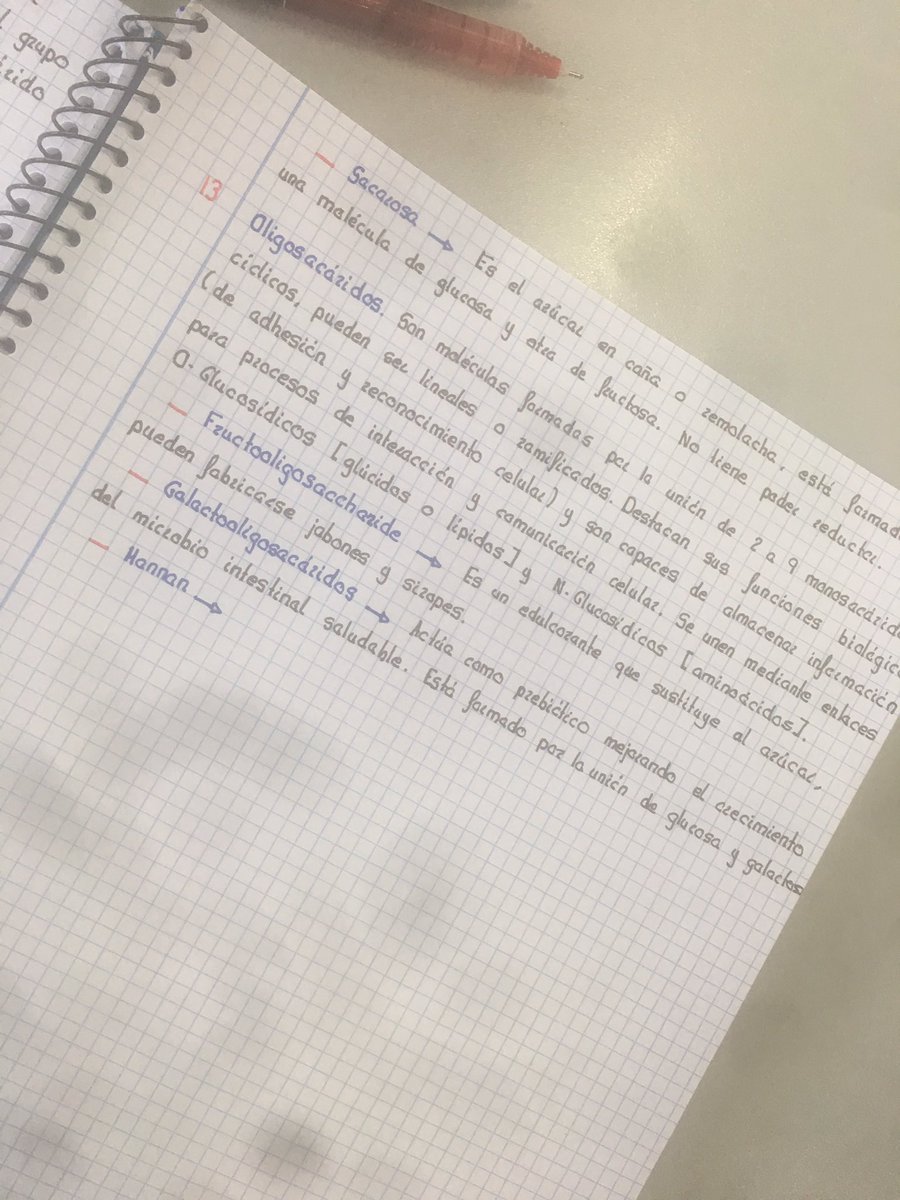 grupo
13
— Sacarosa → Es el azúcar en caña o remolacha, está formada
una molécula de glucosa y otra de fructosa. No tiene poder reductor.
Oligosacáridos. Son moléculas formadas por la unión de 2 a 9 monosacáridos
cíclicos, pueden ser lineales o ramificados. Destacan sus funciones biológicas
(de adhesión y reconocimiento celular) y son capaces de almacenar información
para procesos de interacción y comunicación celular. Se unen mediante enlaces
O-Glucosídicos [glúcidos o lípidos] y N-Glucosídicos [aminoácidos].
— Fructooligosaccharide → Es un edulcorante que sustituye al azúcar,
pueden fabricarse jabones y siropes.
— Galactooligosacáridos → Actúa como prebiótico mejorando el crecimiento
del microbio intestinal saludable. Está formado por la unión de glucosa y galactos
— Mannan →